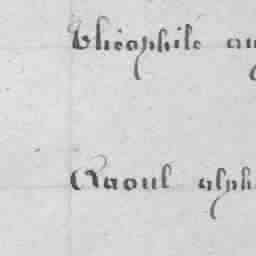 Théophile au
Raoul alph